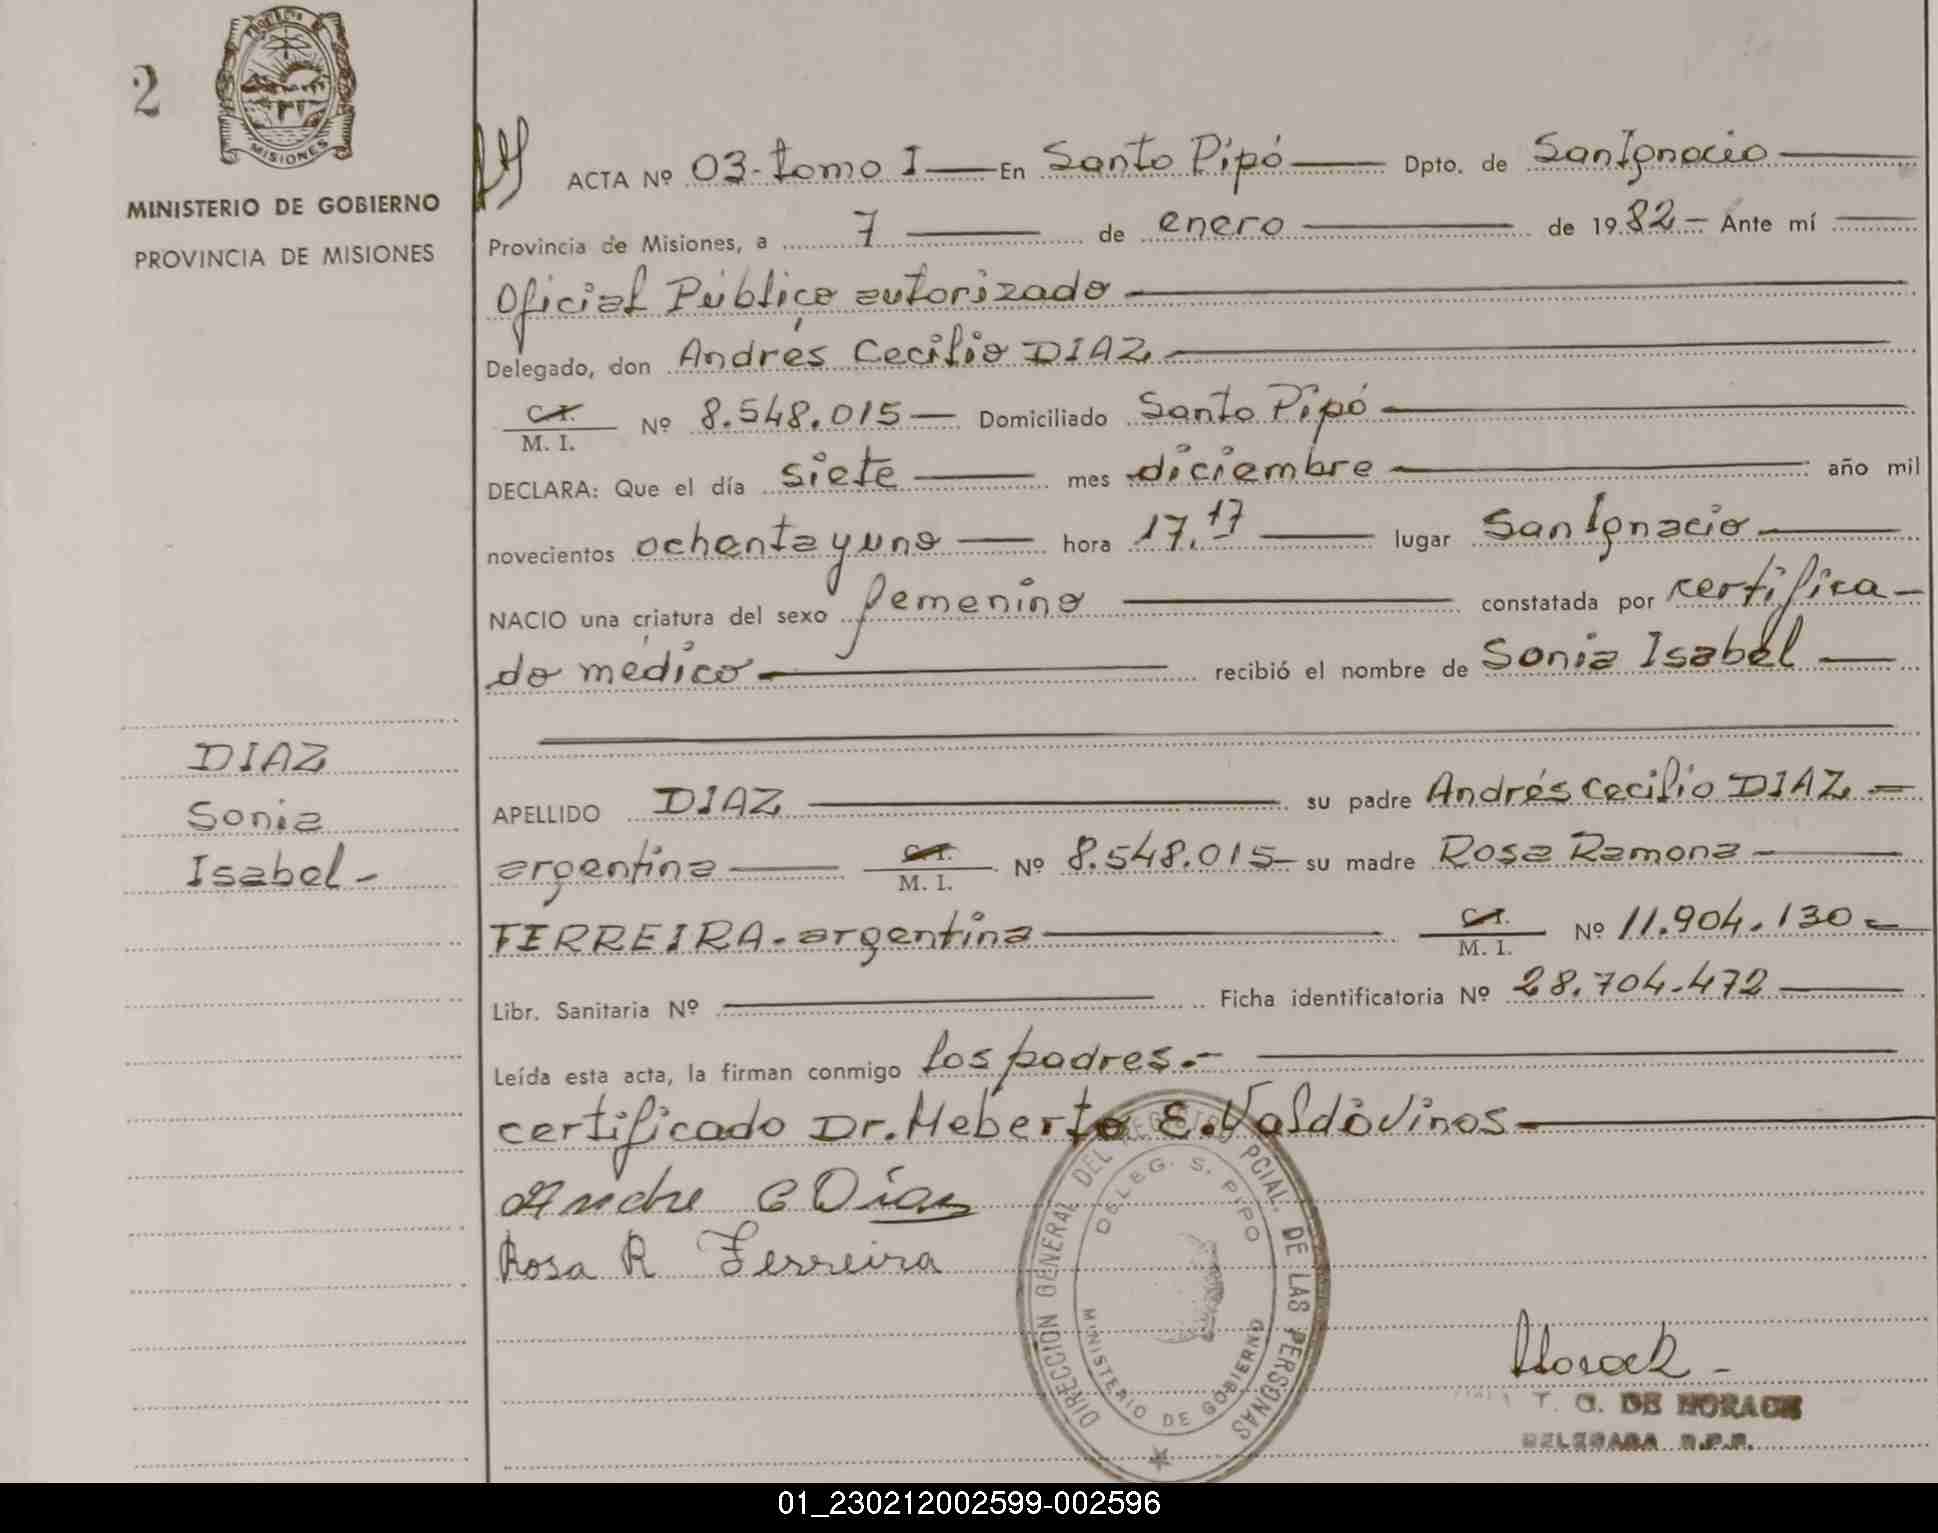 2
MISIONES
MINISTERIO DE GOBIERNO
PROVINCIA DE MISIONES
ACTA Nº 03-tomo I — En Santo Pipó — Dpto. de San Ignacio —
Provincia de Misiones, a 7 — de enero — de 1982 — Ante mí
Oficial Público autorizado —
Delegado, don Andrés Cecilio DIAZ —
C. I.
M. I. Nº 8.548.015 — Domiciliado Santo Pipó —
DECLARA: Que el día siete — mes diciembre — año mil
novecientos ochenta y uno — hora 17.17 — lugar San Ignacio —
NACIO una criatura del sexo femenino — constatada por certifica-
do médico — recibió el nombre de Sonia Isabel —
DIAZ
Sonia
Isabel -
APELLIDO DIAZ — su padre Andrés Cecilio DIAZ —
argentina — C. I. M. I. Nº 8.548.015 — su madre Rosa Ramona —
FERREIRA - argentina — C. I. M. I. Nº 11.904.130 -
Libr. Sanitaria Nº — Ficha identificatoria Nº 28.704.472 —
Leída esta acta, la firman conmigo los padres.- —
certificado Dr. Heberto E. Valdovinos —
Andre C Díaz
Rosa R Ferreira
DIRECCION GENERAL DEL REGISTRO PCIAL. DE LAS PERSONAS
DELEG. S. PIPO
MINISTERIO DE GOBIERNO
Horack -
T. G. DE HORACK
DELEGADA R.P.P.
01_230212002599-002596